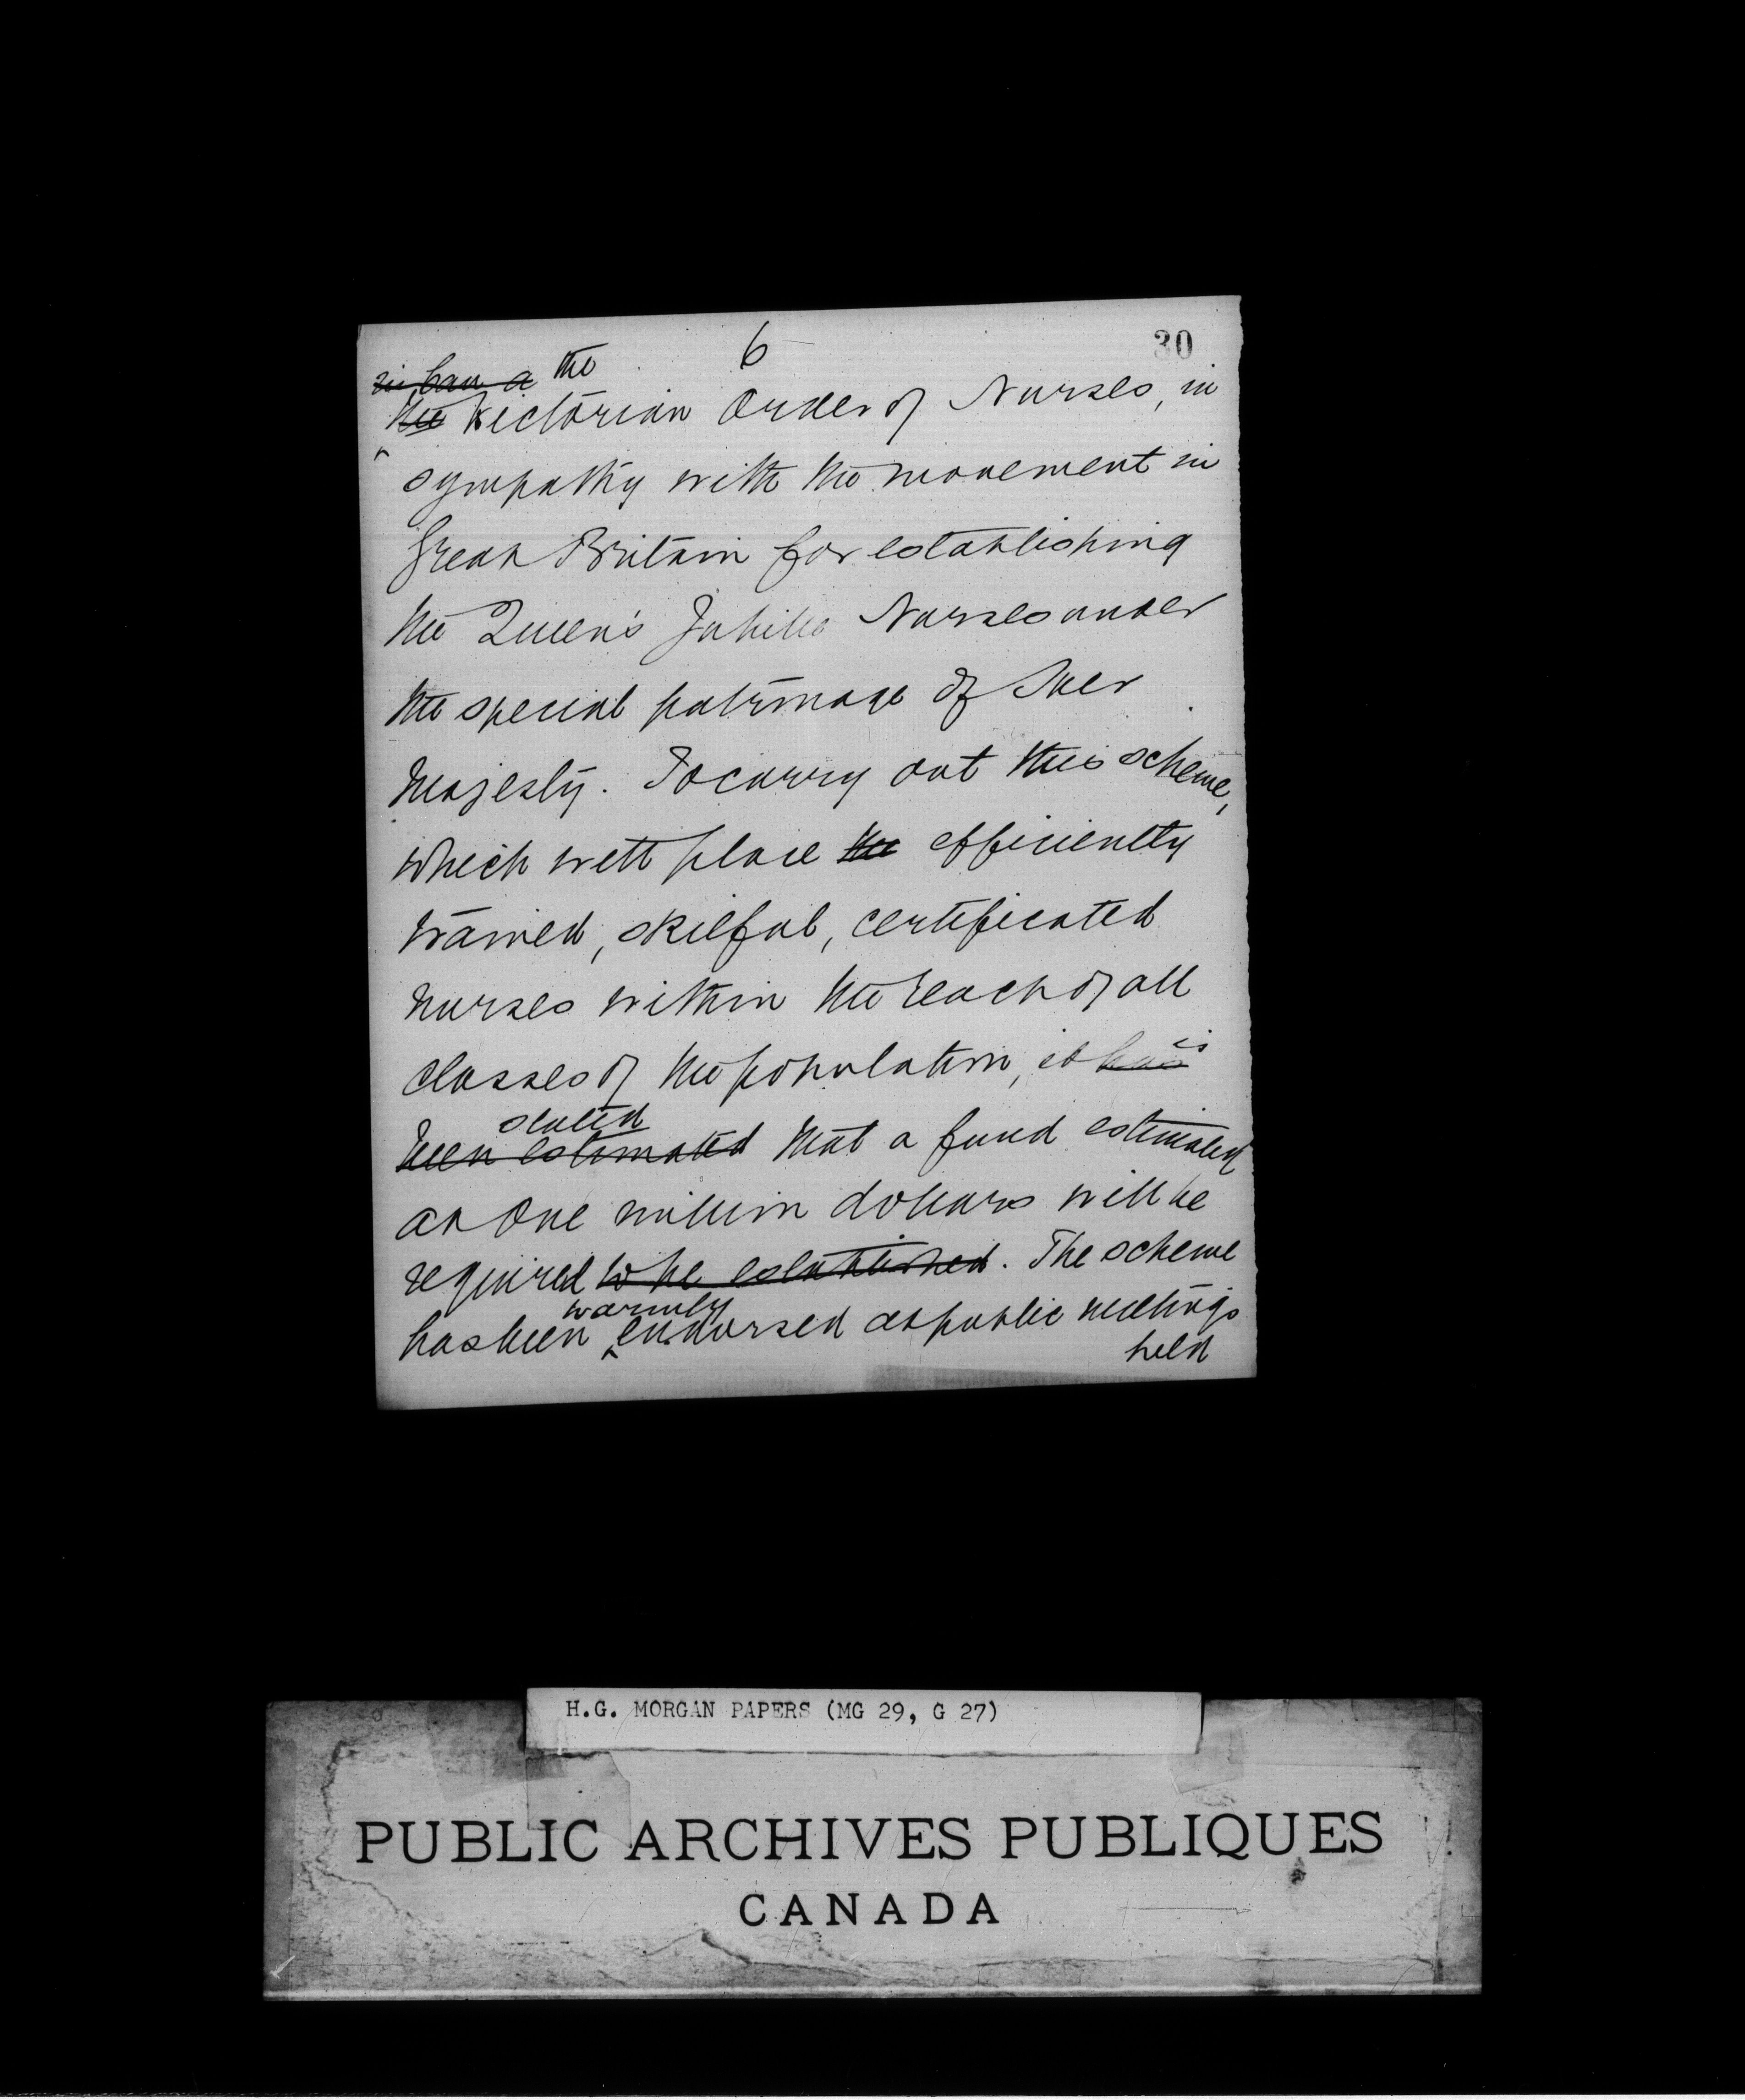 6
30
in Can a the
the Victorian Order of Nurses, in
sympathy with the movement in
Great Britain for establishing
the Queen's Jubilee Nurses under
the special patronage of Her
Majesty. To carry out this scheme,
which will place the efficiently
trained, skilful, certificated
nurses within the reach of all
classes of the population, it has is
stated
been estimated that a fund estimated
at One million dollars will be
required to be established. The scheme
warmly
has been endorsed at public meetings
held
H.G. MORGAN PAPERS (MG 29, G 27)
PUBLIC ARCHIVES PUBLIQUES
CANADA